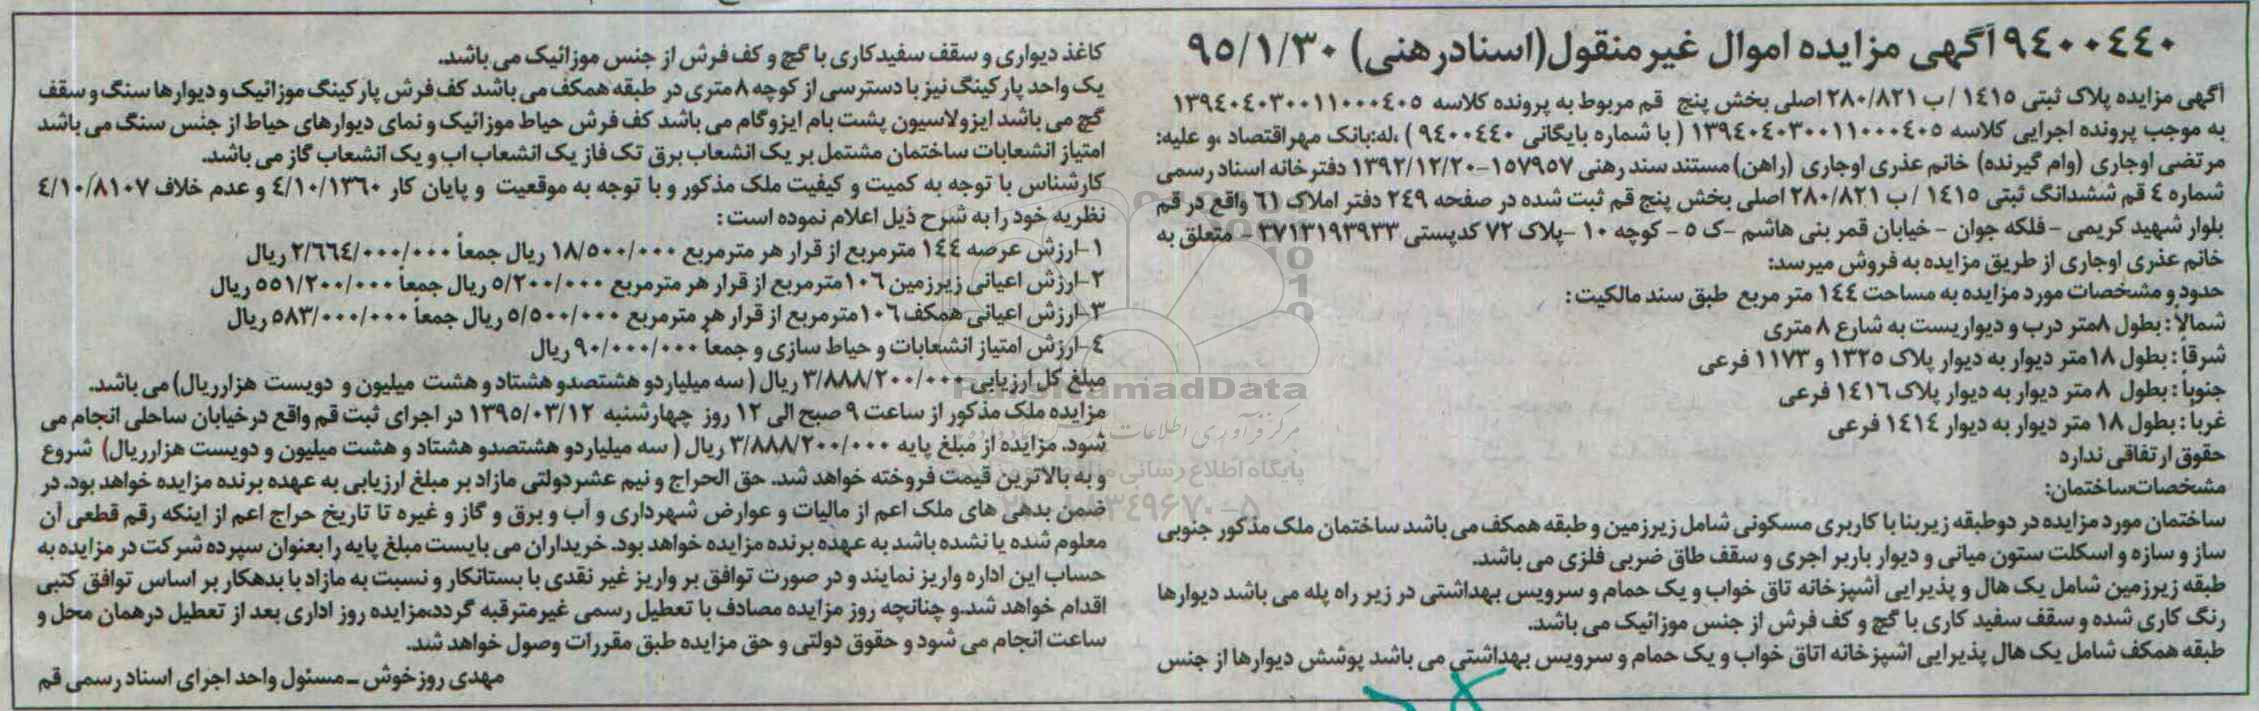 ۹۴۰۰۴۴۰ آگهی مزایده اموال غیرمنقول(اسنادرهنی) ۹۵/۱/۳۰
آگهی مزایده پلاک ثبتی ۱۴۱۵ /ب ۲۸۰/۸۲۱ اصلی بخش پنج قم مربوط به پرونده کلاسه ۱۳۹۴۰۴۰۳۰۰۱۱۰۰۰۴۰۵
به موجب پرونده اجرایی کلاسه ۱۳۹۴۰۴۰۳۰۰۱۱۰۰۰۴۰۵ ( با شماره بایگانی ۹۴۰۰۴۴۰ ) ،له:بانک مهراقتصاد ،و علیه:
مرتضی اوجاری (وام گیرنده) خانم عذری اوجاری (راهن) مستند سند رهنی ۱۵۷۹۵۷-۱۳۹۲/۱۲/۲۰ دفترخانه اسناد رسمی
شماره ۴ قم ششدانگ ثبتی ۱۴۱۵ /ب ۲۸۰/۸۲۱ اصلی بخش پنج قم ثبت شده در صفحه ۲۴۹ دفتر املاک ۶۱ واقع در قم
بلوار شهید کریمی - فلکه جوان - خیابان قمر بنی هاشم -ک ۵ - کوچه ۱۰ -پلاک ۷۲ کدپستی ۳۷۱۳۱۹۳۹۳۳ - متعلق به
خانم عذری اوجاری از طریق مزایده به فروش میرسد:
حدود و مشخصات مورد مزایده به مساحت ۱۴۴ متر مربع طبق سند مالکیت :
شمالاً : بطول ۸متر درب و دیواریست به شارع ۸ متری
شرقاً : بطول ۱۸متر دیوار به دیوار پلاک ۱۳۲۵ و ۱۱۷۳ فرعی
جنوباً : بطول ۸ متر دیوار به دیوار پلاک ۱۴۱۶ فرعی
غربا : بطول ۱۸ متر دیوار به دیوار ۱۴۱۴ فرعی
حقوق ارتفاقی ندارد
مشخصات‌ساختمان:
ساختمان مورد مزایده در دوطبقه زیربنا با کاربری مسکونی شامل زیرزمین و طبقه همکف می باشد ساختمان ملک مذکور جنوبی
ساز و سازه و اسکلت ستون میانی و دیوار باربر اجری و سقف طاق ضربی فلزی می باشد.
طبقه زیرزمین شامل یک هال و پذیرایی آشپزخانه تاق خواب و یک حمام و سرویس بهداشتی در زیر راه پله می باشد دیوارها
رنگ کاری شده و سقف سفید کاری با گچ و کف فرش از جنس موزائیک می باشد.
طبقه همکف شامل یک هال پذیرایی اشپزخانه اتاق خواب و یک حمام و سرویس بهداشتی می باشد پوشش دیوارها از جنس
کاغذ دیواری و سقف سفیدکاری با گچ و کف فرش از جنس موزائیک می باشد.
یک واحد پارکینگ نیز با دسترسی از کوچه ۸ متری در طبقه همکف می باشد کف فرش پارکینگ موزائیک و دیوارها سنگ و سقف
گچ می باشد ایزولاسیون پشت بام ایزوگام می باشد کف فرش حیاط موزائیک و نمای دیوارهای حیاط از جنس سنگ می باشد
امتیاز انشعابات ساختمان مشتمل بر یک انشعاب برق تک فاز یک انشعاب اب و یک انشعاب گاز می باشد.
کارشناس با توجه به کمیت و کیفیت ملک مذکور و با توجه به موقعیت و پایان کار ۴/۱۰/۱۳۶۰ و عدم خلاف ۴/۱۰/۸۱۰۷
نظریه خود را به شرح ذیل اعلام نموده است :
۱-ارزش عرصه ۱۴۴ مترمربع از قرار هر مترمربع ۱۸/۵۰۰/۰۰۰ ریال جمعاً ۲/۶۶۴/۰۰۰/۰۰۰ ریال
۲-ارزش اعیانی زیرزمین ۱۰۶مترمربع از قرار هر مترمربع ۵/۲۰۰/۰۰۰ ریال جمعاً ۵۵۱/۲۰۰/۰۰۰ ریال
۳-ارزش اعیانی همکف ۱۰۶مترمربع از قرار هر مترمربع ۵/۵۰۰/۰۰۰ ریال جمعاً ۵۸۳/۰۰۰/۰۰۰ ریال
۴-ارزش امتیاز انشعابات و حیاط سازی و جمعاً ۹۰/۰۰۰/۰۰۰ ریال
مبلغ کل ارزیابی ۳/۸۸۸/۲۰۰/۰۰۰ ریال ( سه میلیاردو هشتصدو هشتاد و هشت میلیون و دویست هزارریال) می باشد.
مزایده ملک مذکور از ساعت ۹ صبح الی ۱۲ روز چهارشنبه ۱۳۹۵/۰۳/۱۲ در اجرای ثبت قم واقع درخیابان ساحلی انجام می
شود. مزایده از مبلغ پایه ۳/۸۸۸/۲۰۰/۰۰۰ ریال ( سه میلیاردو هشتصدو هشتاد و هشت میلیون و دویست هزارریال) شروع
و به بالاترین قیمت فروخته خواهد شد. حق الحراج و نیم عشردولتی مازاد بر مبلغ ارزیابی به عهده برنده مزایده خواهد بود. در
ضمن بدهی های ملک اعم از مالیات و عوارض شهرداری و آب و برق و گاز و غیره تا تاریخ حراج اعم از اینکه رقم قطعی آن
معلوم شده یا نشده باشد به عهده برنده مزایده خواهد بود. خریداران می بایست مبلغ پایه را بعنوان سپرده شرکت در مزایده به
حساب این اداره واریز نمایند و در صورت توافق بر واریز غیر نقدی با بستانکار و نسبت به مازاد با بدهکار بر اساس توافق کتبی
اقدام خواهد شد.و چنانچه روز مزایده مصادف با تعطیل رسمی غیرمترقبه گردد،مزایده روز اداری بعد از تعطیل درهمان محل و
ساعت انجام می شود و حقوق دولتی و حق مزایده طبق مقررات وصول خواهد شد.
مهدی روزخوش – مسئول واحد اجرای اسناد رسمی قم
ParsNamadData
پایگاه اطلاع رسانی